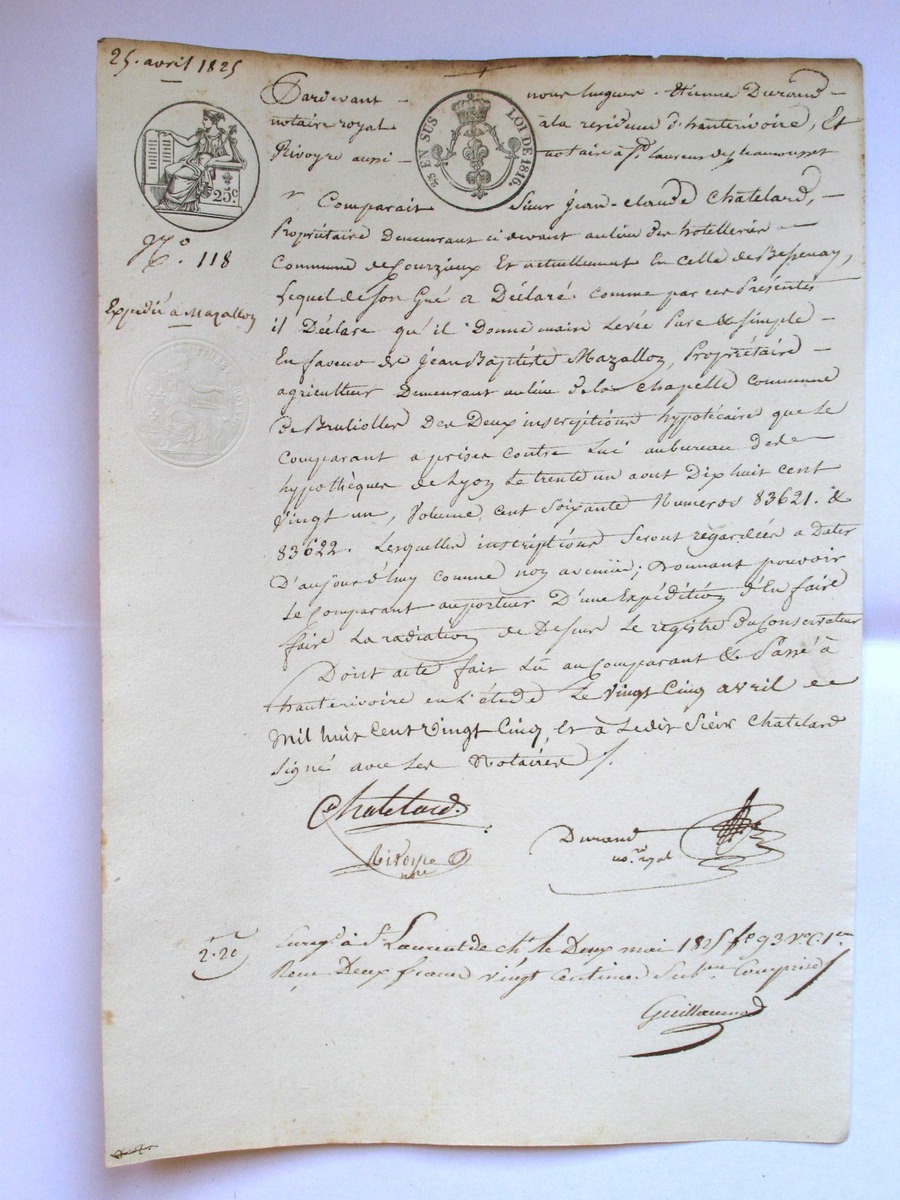 25. avril 1825
Pardevant nous Etienne Durand
notaire royal à la residence d'hauterivoire, Et
Rivoyre aussi notaire à St. Laurent de chamousset
25c
EN SUS LOI DE 1816.
Comparait Sieur Jean-Claude Chatelard,
N.° 118
Propriétaire Demeurant ci devant au lieu des hotelleries
Commune de Courzieux Et actuellement En celle de Bessenay,
Expedié a Mazallon
Lequel de Son Gré a Déclaré comme par ces Présentes
il Déclare qu'il Donne main Levée Pure & simple
En faveur de Jean Baptiste Mazallon, Propriétaire
agriculteur Demeurant au lieu de la Chapelle commune
de Brullioles Des Deux inscriptions hypotécaire que Le
Comparant a prises contre Lui au bureau des
hypothèques de Lyon Le trente un aout Dix huit cent
vingt un, Volume cent Soixante Numeros 83621. &
83622. Lesquelles inscriptions Seront regardées a Dater
D'aujourd'huy comme non avenue; Donnant pouvoir
Le Comparant au porteur D'une Expédition d'En faire
faire La radiation de Dessus Le registre du Conservateur
Dont acte fait Lu au Comparant & Passé à
hauterivoire en L'étude Le vingt Cinq avril
Mil huit Cent vingt Cinq, Et à Ledit Sieur Chatelard
Signé avec Les Notaires
Chatelard.
Rivoyre
nre
Durand
no.re royal
2.20
Enreg.é à St Laurent de Ch.t le Deux mai 1825 f.o 93 v.o C. 1.re
Reçu Deux francs vingt Centimes Sub.on Comprise
Guillaumod